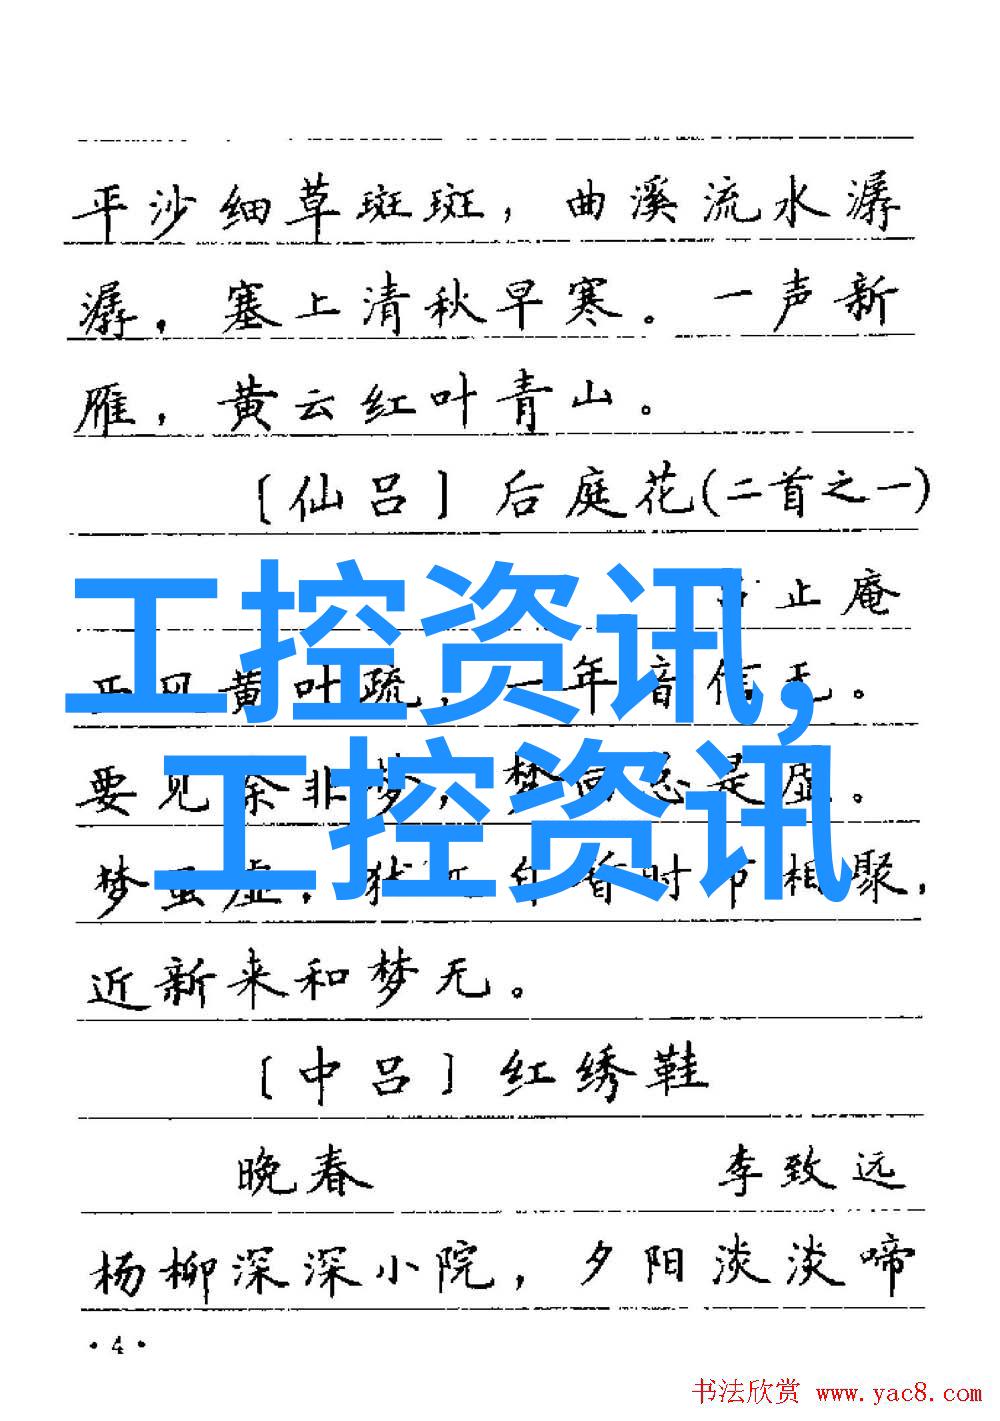 平沙细草斑斑，曲溪流水潺
潺，塞上清秋早寒。一声新
雁，黄云红叶青山。
〔仙吕〕后庭花(二首之一)
止庵
黄叶疏，一年音信无。
要见除非梦，梦回总是虚。
梦虽虚，犹时节相聚，
近新来和梦无。
〔中吕〕红绣鞋
晚春 李致远
杨柳深深小院，夕阳淡淡啼
·4·
工控资讯,
工控资讯
书法欣赏 www.yac8.com